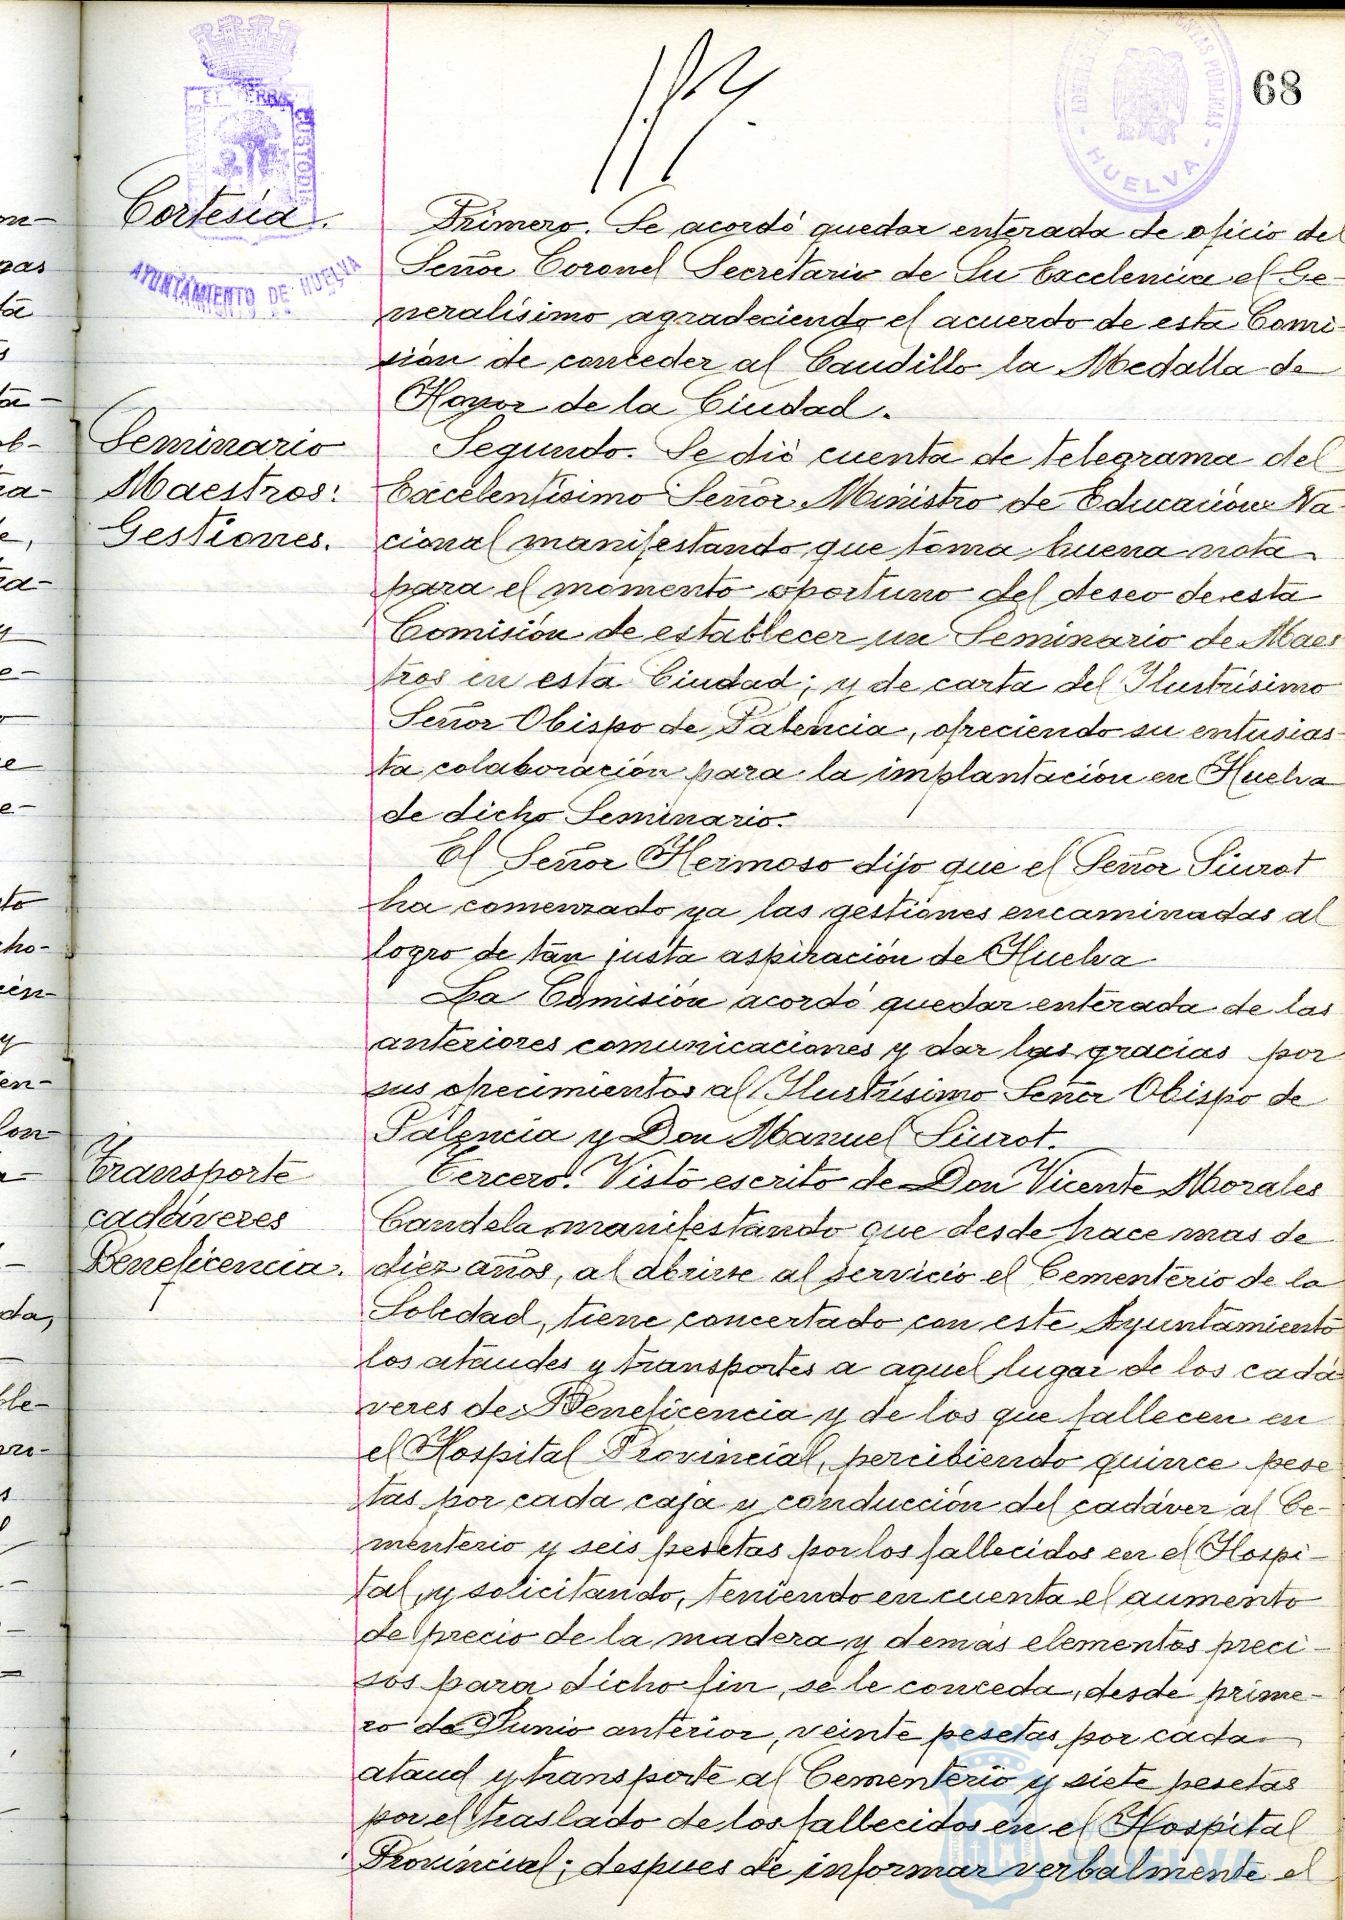 68
ADMINISTRACIÓN DE RENTAS PÚBLICAS
- HUELVA -
ET TERRÆ CUSTODIA
AYUNTAMIENTO DE HUELVA
Cortesía.
Primero. Se acordó quedar enterada de oficio del
Señor Coronel Secretario de Su Excelencia el Ge-
neralísimo agradeciendo el acuerdo de esta Comi-
sión de conceder al Caudillo la Medalla de
Honor de la Ciudad.
Seminario
Maestros:
Gestiones.
Segundo. Se dió cuenta de telegrama del
Excelentísimo Señor Ministro de Educación Na-
cional manifestando que toma buena nota
para el momento oportuno del deseo de esta
Comisión de establecer un Seminario de Maes
tros en esta Ciudad; y de carta del Ilustrísimo
Señor Obispo de Palencia, ofreciendo su entusias-
ta colaboración para la implantación en Huelva
de dicho Seminario.
El Señor Hermoso dijo que el Señor Siurot
ha comenzado ya las gestiones encaminadas al
logro de tan justa aspiración de Huelva
La Comisión acordó quedar enterada de las
anteriores comunicaciones y dar las gracias por
sus ofrecimientos al Ilustrísimo Señor Obispo de
Palencia y Don Manuel Siurot.
Transporte
cadáveres
Beneficencia.
Tercero. Visto escrito de Don Vicente Morales
Candela manifestando que desde hace mas de
diez años, al abrirse al servicio el Cementerio de la
Soledad, tiene concertado con este Ayuntamiento
los ataudes y transportes a aquel lugar de los cadá
veres de Beneficencia y de los que fallecen en
el Hospital Provincial, percibiendo quince pese
tas por cada caja y conducción del cadáver al Ce-
menterio y seis pesetas por los fallecidos en el Hospi-
tal, y solicitando, teniendo en cuenta el aumento
de precio de la madera y demás elementos preci-
sos para dicho fin, se le conceda, desde prime-
ro de Junio anterior, veinte pesetas por cada
ataud y transporte al Cementerio y siete pesetas
por el traslado de los fallecidos en el Hospital
Provincial; despues de informar verbalmente el
HUELVA